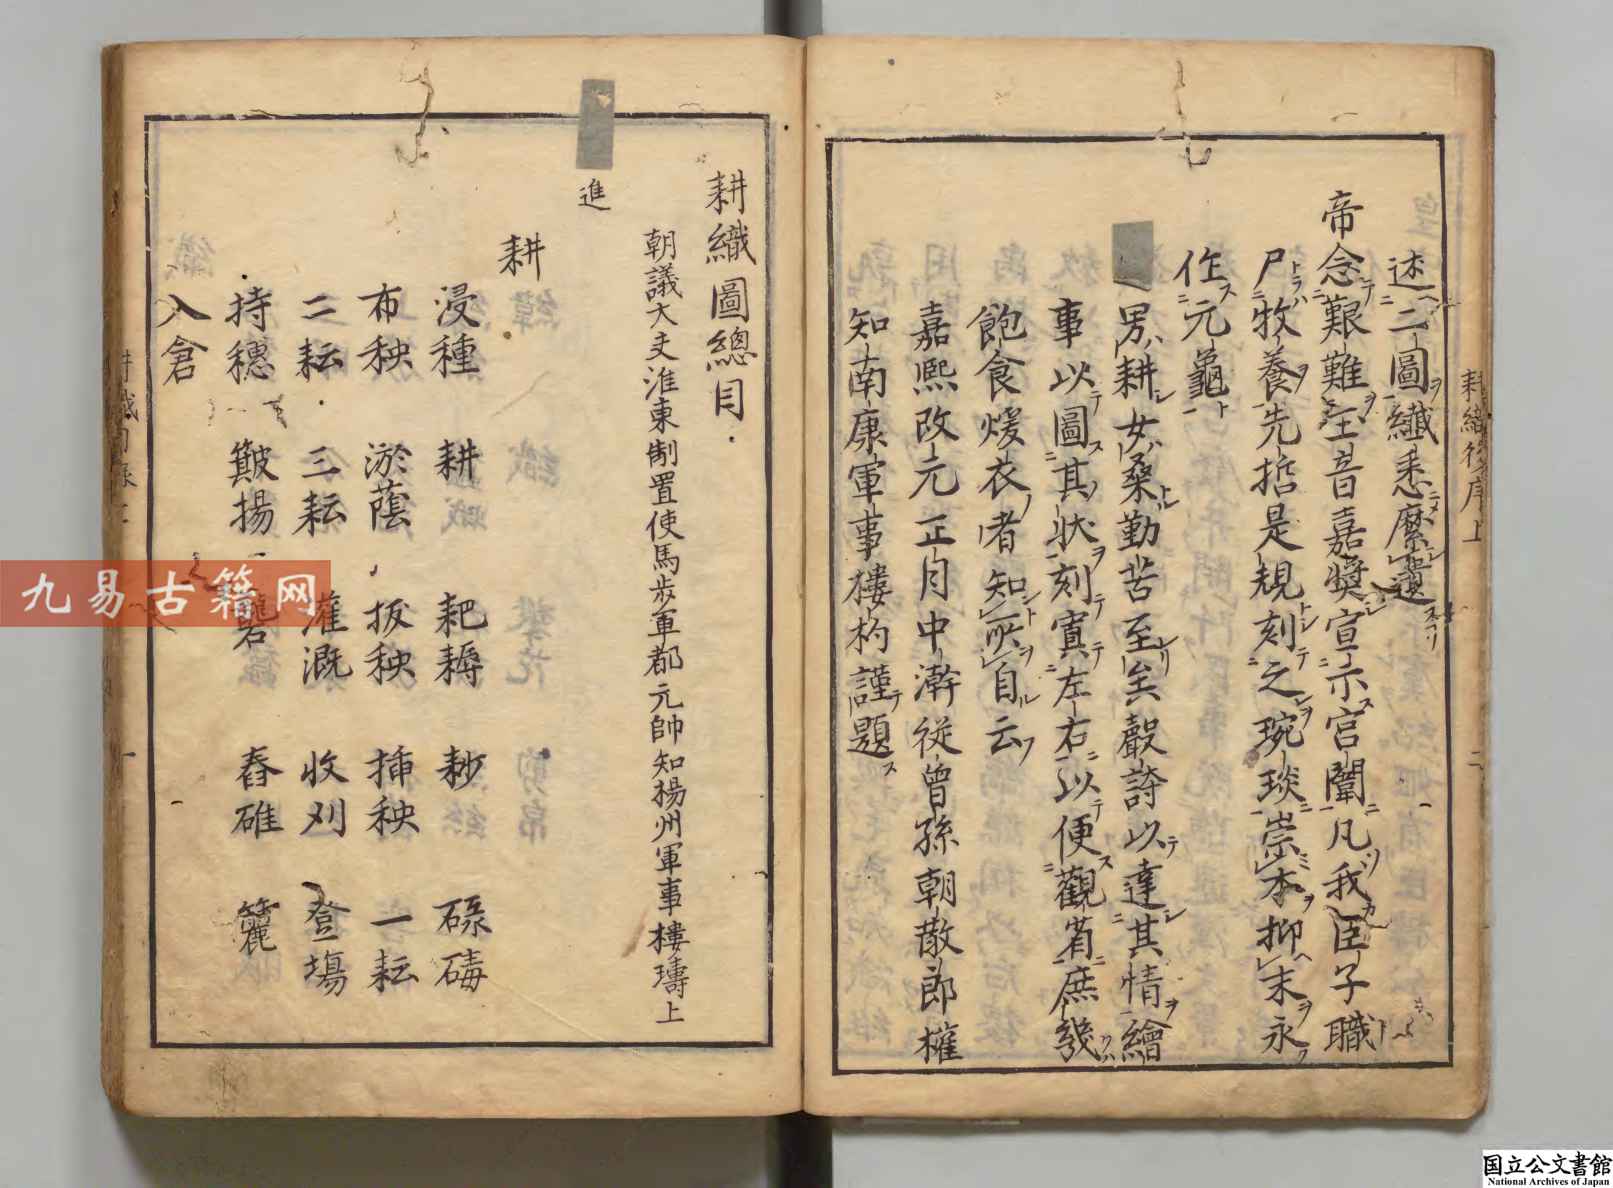 述二圖纖悉縻遺
帝念艱難玉音嘉奬宣示宮闈凡我臣子職
尸牧養先哲是規刻之琬琰崇本抑末永
作元龜
男耕女桑勤苦至矣嚴詩以達其情繪
事以圖其狀刻寘左右以便觀省庶幾
飽食煖衣者知所自云
嘉熙改元正月中澣從曾孫朝散郎權
知南康軍事樓杓謹題
耕織圖總目
朝議大夫淮東制置使馬步軍都元帥知揚州軍事樓璹上
進
耕
浸種 耕 耙耨 耖 碌碡
布秧 淤蔭 拔秧 插秧 一耘
二耘 三耘 灌溉 收刈 登塲
持穗 簸揚 礱 舂碓 籭
入倉
九易古籍网
国立公文書館
National Archives of Japan